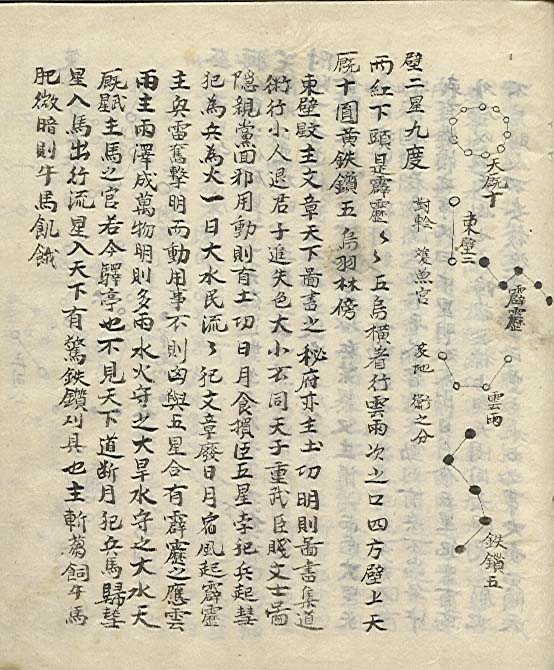 天厩十
東壁二
霹靂
雲雨
鉄鎖五
壁二星九度 對軫 雙魚宮 亥地 衛之分
両紅下頭是霹靂〻〻五烏横着行雲雨次之口四方壁上天
厩十圓黄鉄鎖五烏羽林傍
東壁主文章天下啚書之秘府亦主土切明則啚書集道
術行小人退君子進失色大小不同天子重武臣賎文士啚
隠親黨面邪用動則有土切日月食損臣五星孛犯兵起彗
犯為兵為火一曰大水民流〻犯文章廢日月宿風起霹靂
主興雷奮擊明而動用事不則凶與五星合有霹靂之應雲
雨主雨澤成萬物明則多雨水火守之大旱水守之大水天
厩主馬之官若今驛亭也不見天下道断月犯兵馬歸彗
星入馬出行流星入天下有驚鉄鎖刈具也主斬蒭飼牛馬
肥微暗則牛馬飢餓